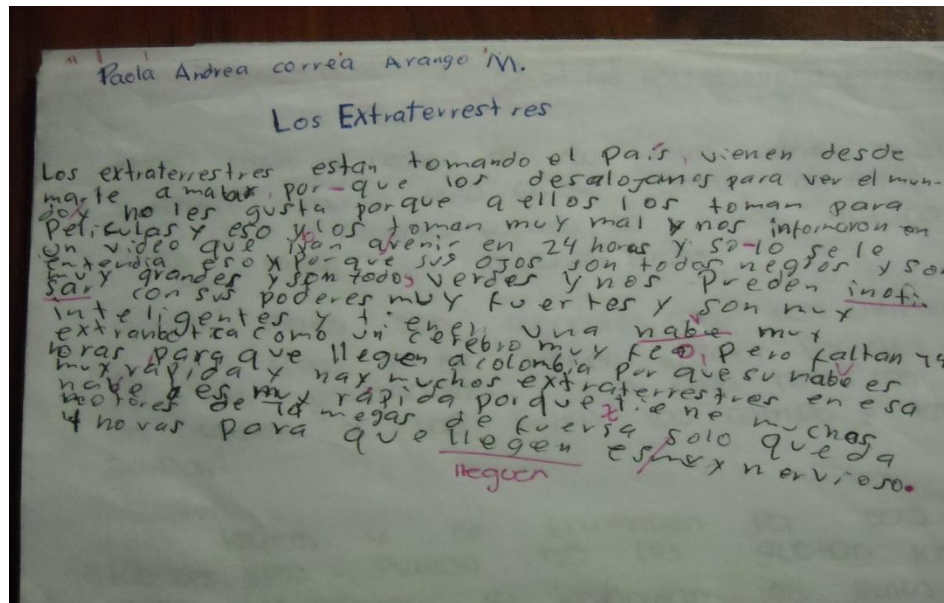 Paola Andrea correa Arango M.
Los Extraterrestres
Los extraterrestres estan tomando el país, vienen desde
marte a matar por-que los desalojamos para ver el mun-
do y no les gusta porque a ellos los toman para
Peliculas y eso los toman muy mal y nos informaron en
un video que ivan avenir en 24 horas y so-lo se le
entendia eso y porque sus ojos son todos negros y son
muy grandes y son todos verdes y nos Preden inofi.
sar con sus poderes muy fuertes y son muy
inteligentes y tienen una nabe muy
extranbotica como un cerebro muy feo, pero faltan 14
horas para que llegen a colombia por que su nabe es
mux rápida y hay muchos extraterrestres en esa
nabe y es muy rápida porque tiene muchos
motores de 14 megas de fuersa solo queda
4 horas para que llegen es mux nervioso.
lleguen